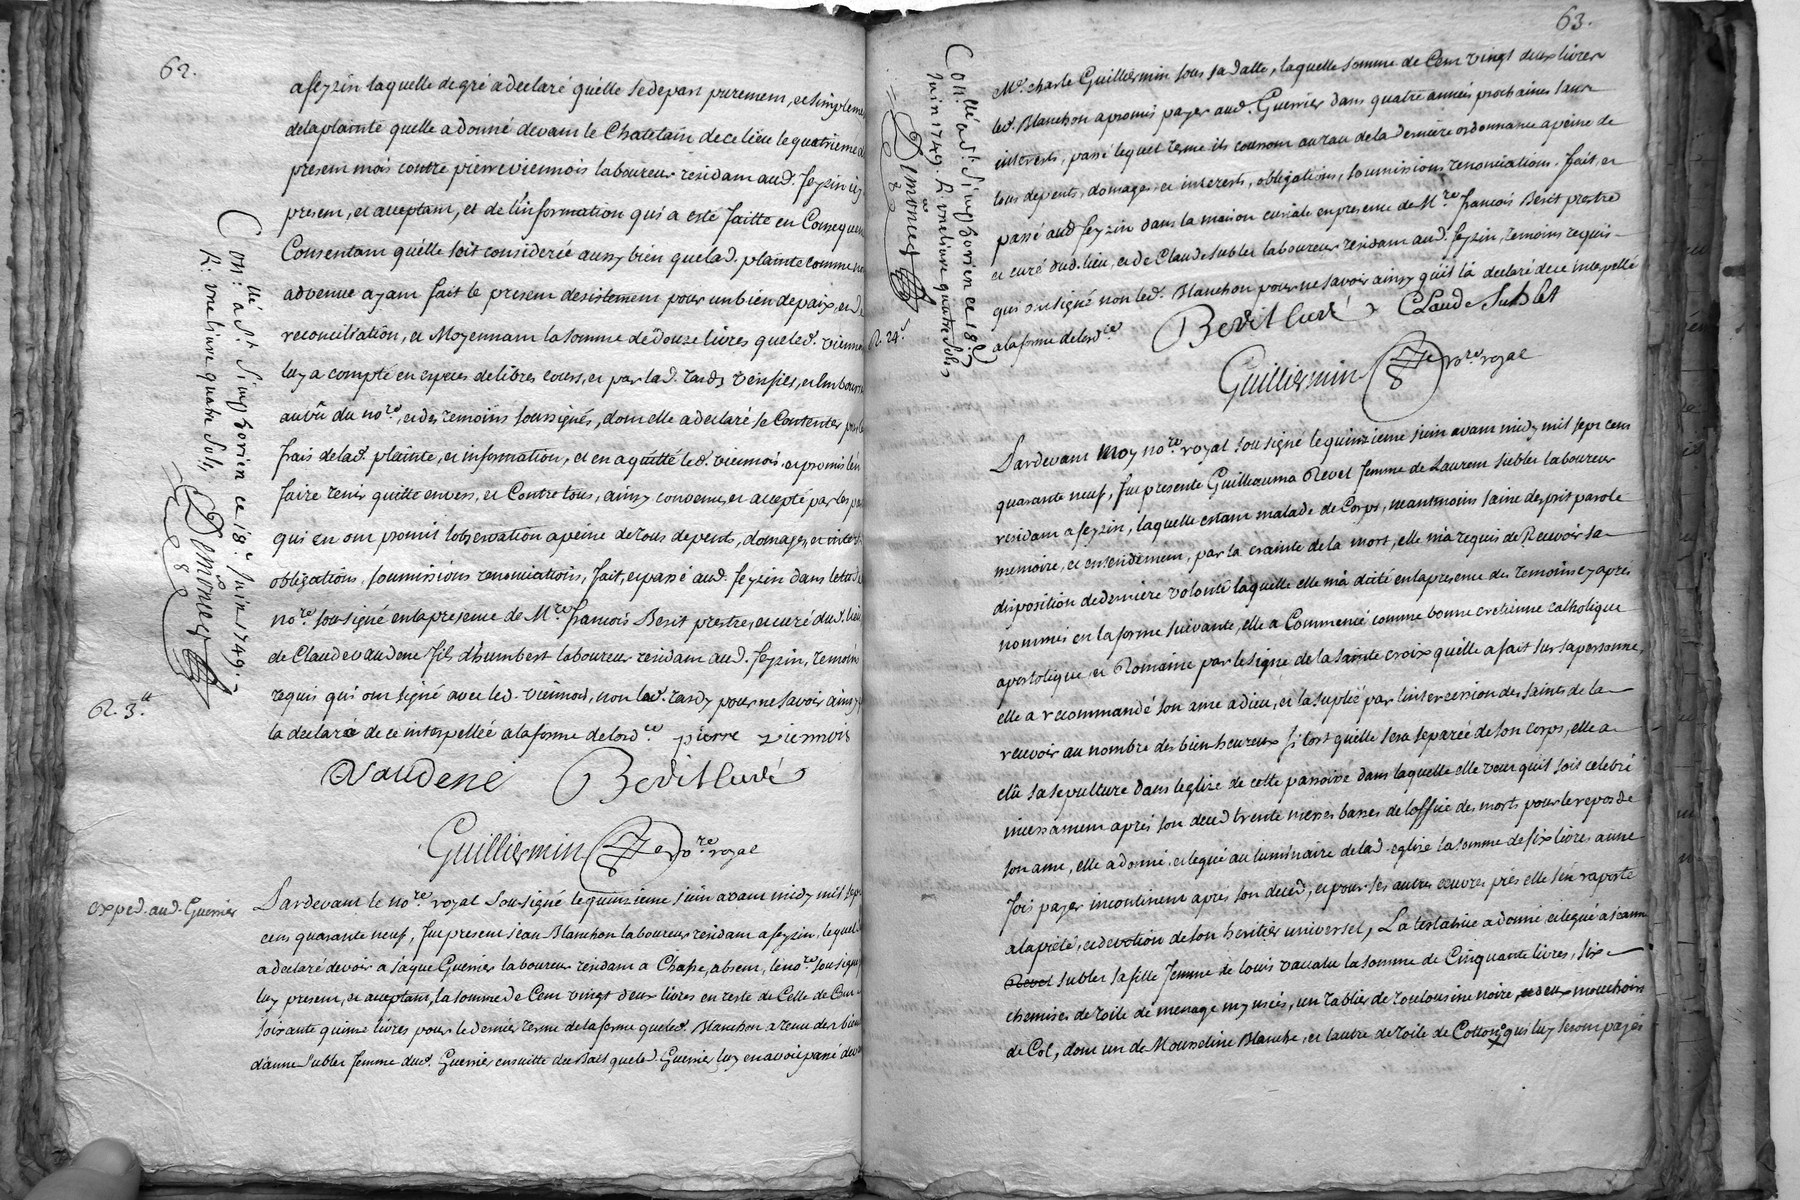 62.
a feyzin laquelle de gré a declaré quelle se depart purement, et simpleme
de la plainte quelle a donné devant le Chatelain de ce lieu le quatrieme d
present mois contre pierre viennois laboureur residant aud. feyzin icy
present, et acceptant, et de l'information qui a esté faitte en Consequen
Consentant quelle soit considerée aussy bien que lad. plainte comme no
advenue ayant fait le present desistement pour un bien de paix, et de
reconciliation, et Moyennant la somme de Douze livres que led. vienno
luy a compté en especes de libres cours, et par lad. tardy verifiés, et Embours
au vû du no.re, et des temoins soussignés, dont elle a declaré se Contenter pour les
frais de lad. plainte, et information, et en a quitté led. viennois, et promis l'en
faire tenir quitte envers, et Contre tous, ainsy convenu, et accepté par les pa
qui en ont promit l'observation a peine de tous depents, domages, et inter
obligations, soumissions renonciations, fait, et passé aud. feyzin dans letude
no.re soussigné en la presence de M.re francois Berit prestre, et curé dud. lieu
de Claude vaudene fils d'humbert laboureur residant aud. feyzin, temoin
requis qui ont signé avec led. viennois, non lad. tardy pour ne savoir ainsy
la declaré de ce interpellée a la forme de lord.ce pierre viennois
Vaudene Berit Curé
Guilliermin no.re royal
Con.llé à S.t Simphorien ce 18.e Juin 1749.
R. une livre quatre sols,
Demoncey
R. 3.tt
exped. aud. Guerrier
Pardevant le no.re royal soussigné le quinzieme juin avant midy mil sep
cens quarante neuf, fut present jean Blanchon laboureur residant a feyzin, lequel
a declaré devoir a jaque Guerrier laboureur residant a Chasse, absent, le no.re soussigné p
luy present, et acceptant, la somme de Cent vingt deux livres en reste de Celle de Cent
soixante quinze livres pour le dernier terme de la ferme que led. Blanchon a tenu des biens
d'anne sublet femme dud. Guerrier ensuitte du Bail que led. Guerrier luy en avoit passé deva
63.
M.e charle Guilliermin sous sa datte, laquelle somme de Cent vingt deux livres
led. Blanchon a promis payer aud. Guerrier dans quatre années prochaines sans
interests, passé lequel terme ils courront au taux de la derniere ordonnance a peine de
tous depents, domages et interests, obligations, soumissions renonciations, fait, et
passé aud. feyzin dans la maison curiale en presence de M.re francois Berit prestre
et curé dud. lieu, et de Claude sublet laboureur residant aud. feyzin, temoins requis
qui ont signé non led. Blanchon pour ne savoir ainsy quil la declaré de ce interpellé
a la forme de lord.ce Berit Curé Claude Sublet
Guilliermin no.re royal
Con.llé a S.t Simphorien ce 18.e
Juin 1749. R. une livre quatre sols
Demoncey
R. 24.s
Pardevant Moy no.re royal soussigné le quinzieme juin avant midy mil sept cent
quarante neuf, fut presente Guilliauma Revel femme de Laurent sublet laboureur
residant a feyzin, laquelle estant malade de Corps, neantmoins saine desprit parole
memoire, et entendement, par la crainte de la mort, elle m'a requis de Recevoir sa
disposition de derniere volonté laquelle elle m'a dicté en la presence des temoins cy apres
nommés en la forme suivante, elle a Commencé comme bonne cretienne catholique
apostolique, et Romaine par le signe de la sainte croix quelle a fait sur sa personne,
elle a recommandé son ame a dieu, et la suplié par l'intercession des saints de la
recevoir au nombre des bienheureux si tost quelle sera separée de son corps, elle a
elû sa sepulture dans leglise de cette parroisse dans laquelle elle veut quil soit celebré
incessament apres son deced trente messes basses de l'office des morts pour le repos de
son ame, elle a donné, et legué au luminaire de lad. eglise la somme de six livres a une
fois payer incontinent apres son deced, et pour ses autres œuvres pies elle s'en raporte
a la pieté, et devotion de son heritier universel, La testatrice a donné, et legué a jeanne
Revel sublet sa fille femme de louis vacalu la somme de Cinquante livres, six
chemises de toile de menage my usées, un tablier de toulousine noire, et deux mouchoirs
de Col, dont un de Mousseline Blanche, et l'autre de toile de Cotton, qui luy seront payés